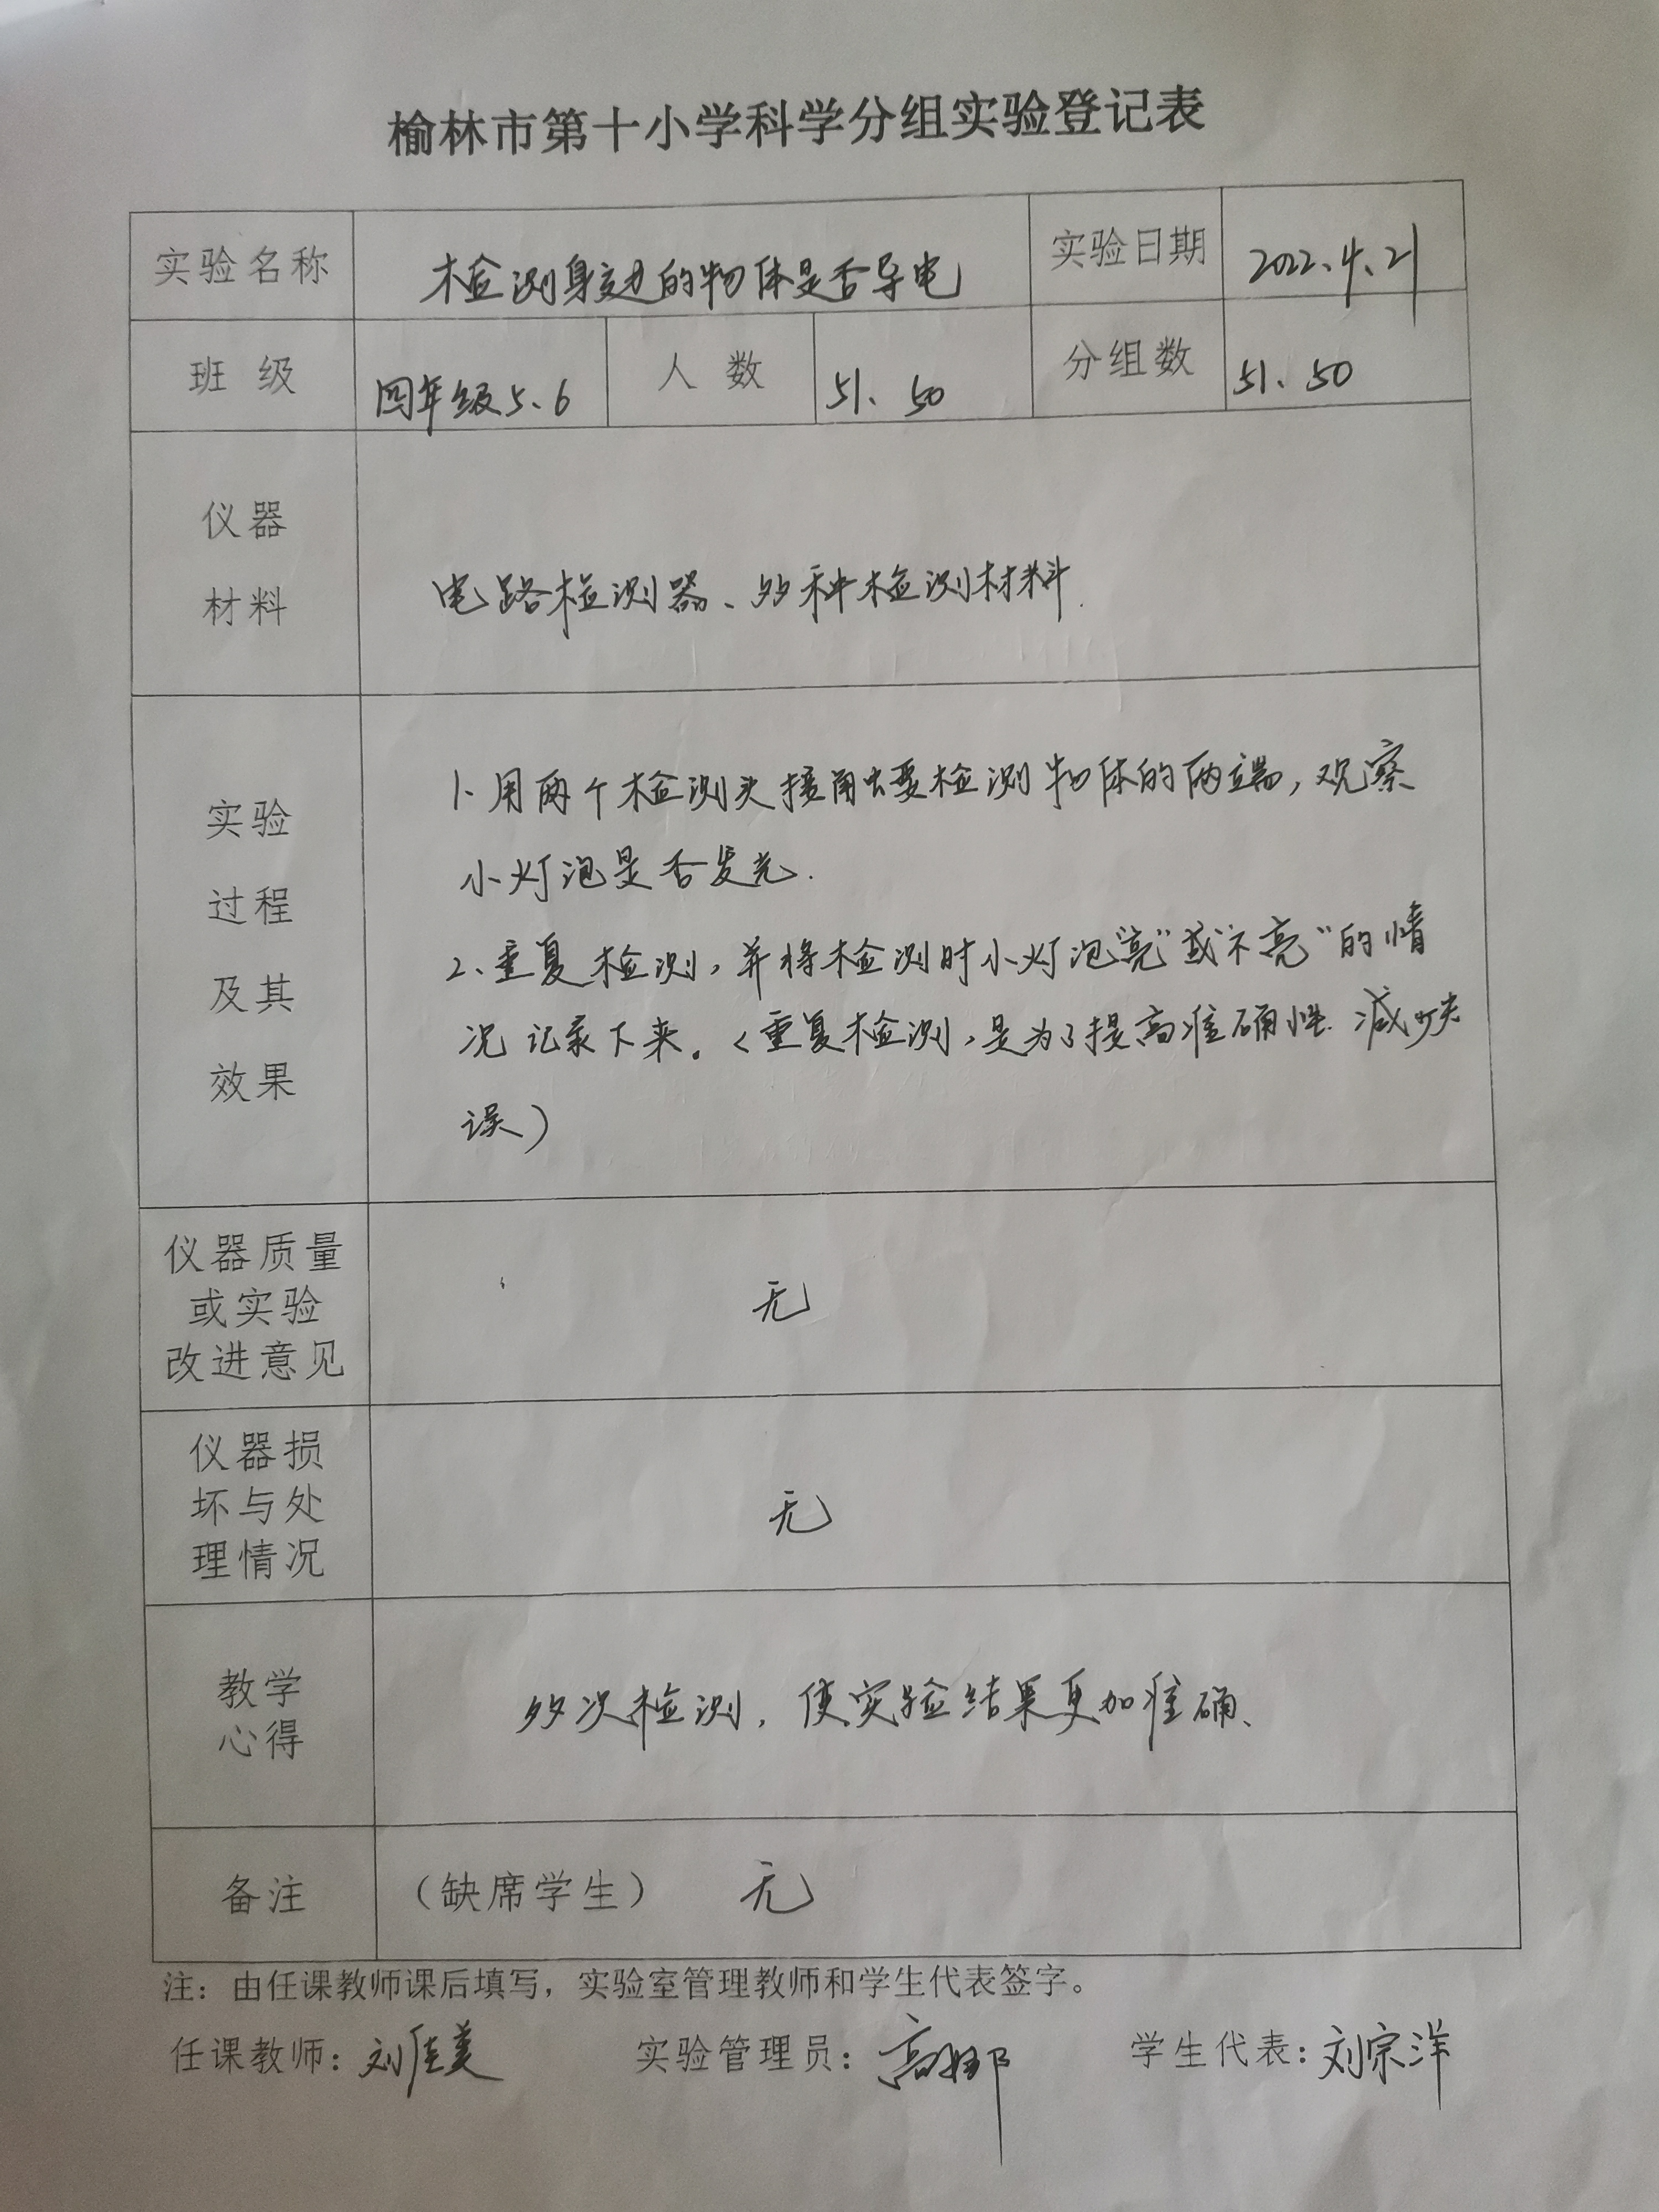 榆林市第十小学科学分组实验登记表
实验名称 检测身边的物体是否导电 实验日期 2022.4.21
班 级 四年级5、6 人 数 51、50 分组数 51、50
仪器
材料
电路检测器、多种检测材料.
实验
过程
及其
效果
1.用两个检测头接触要检测物体的两端,观察
小灯泡是否发光.
2、重复检测,并将检测时小灯泡“亮”或“不亮”的情
况记录下来。(重复检测,是为了提高准确性.减少失
误)
仪器质量
或实验
改进意见
无
仪器损
坏与处
理情况
无
教学
心得
多次检测,使实验结果更加准确、
备注 (缺席学生) 无
注:由任课教师课后填写,实验室管理教师和学生代表签字。
任课教师:刘佳美 实验管理员:高娜 学生代表:刘宗洋